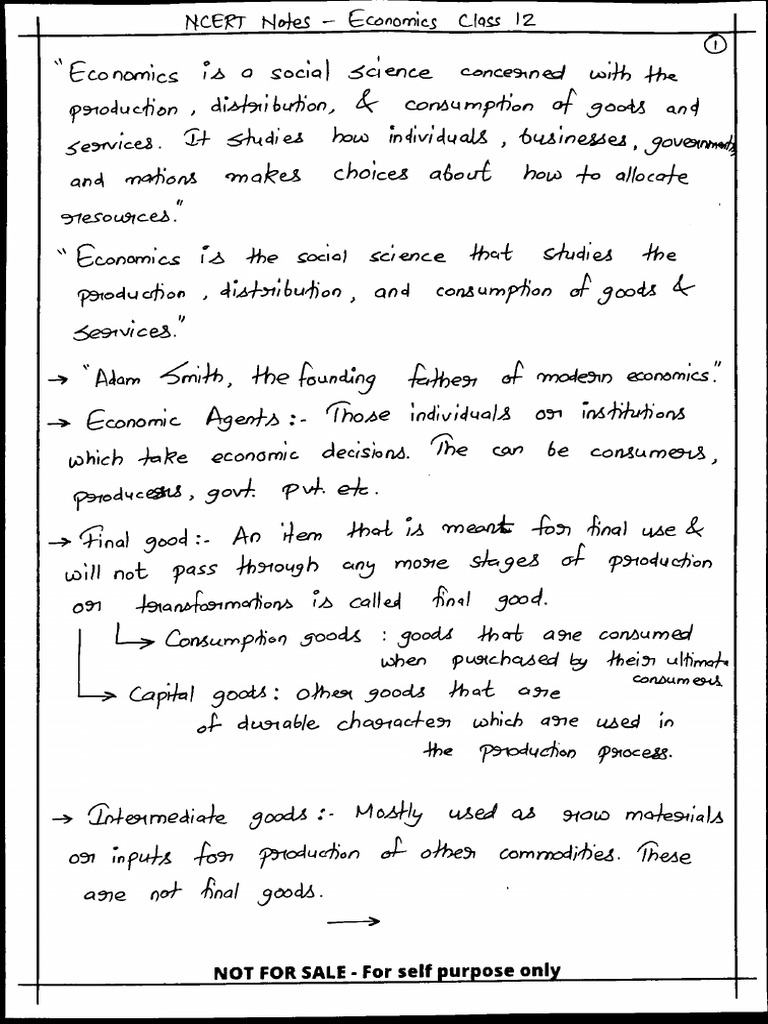 NCERT Notes - Economics Class 12
1
"Economics is a social science concerned with the
production, distribution, & consumption of goods and
services. It studies how individuals, businesses, governments,
and nations makes choices about how to allocate
resources."
"Economics is the social science that studies the
production, distribution, and consumption of goods &
services."
→ "Adam Smith, the founding father of modern economics."
→ Economic Agents :- Those individuals or institutions
which take economic decisions. The can be consumers,
producers, govt. pvt. etc.
→ Final good :- An item that is meant for final use &
will not pass through any more stages of production
or transformations is called final good.
→ Consumption goods : goods that are consumed
when purchased by their ultimate
consumers.
→ Capital goods : other goods that are
of durable character which are used in
the production process.
→ Intermediate goods :- Mostly used as raw materials
or inputs for production of other commodities. These
are not final goods.
→
NOT FOR SALE - For self purpose only